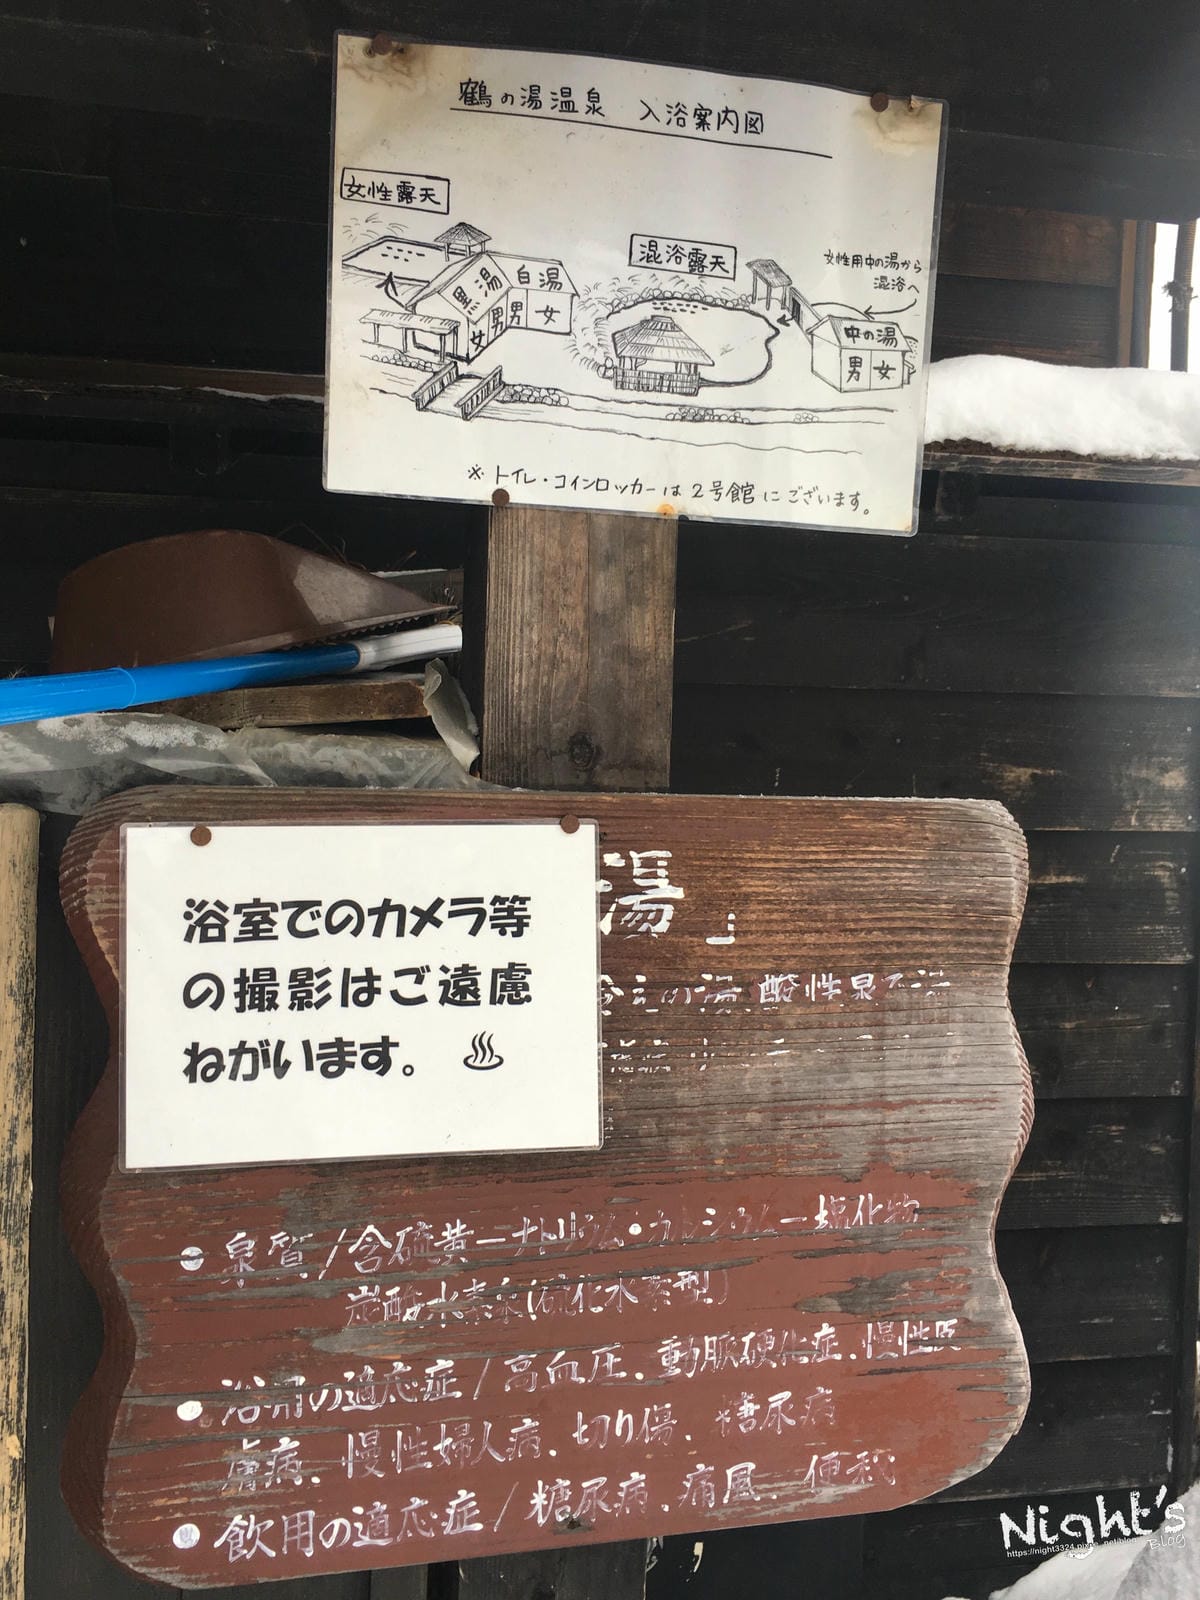 鶴の湯温泉 入浴案内図
女性露天
混浴露天
女性用中の湯から
混浴へ
黒湯
白湯
女 男 男 女
中の湯
男 女
※トイレ・コインロッカーは2号館にございます。
湯」
の湯 酸性泉
浴室でのカメラ等
の撮影はご遠慮
ねがいます。 ♨
●泉質/含硫黄ーナトリウム・カルシウムー塩化物
炭酸水素泉(硫化水素型)
●浴用の適応症/高血圧、動脈硬化症、慢性皮
膚病、慢性婦人病、切り傷、糖尿病
●飲用の適応症/糖尿病、痛風、便秘
Night's
Blog